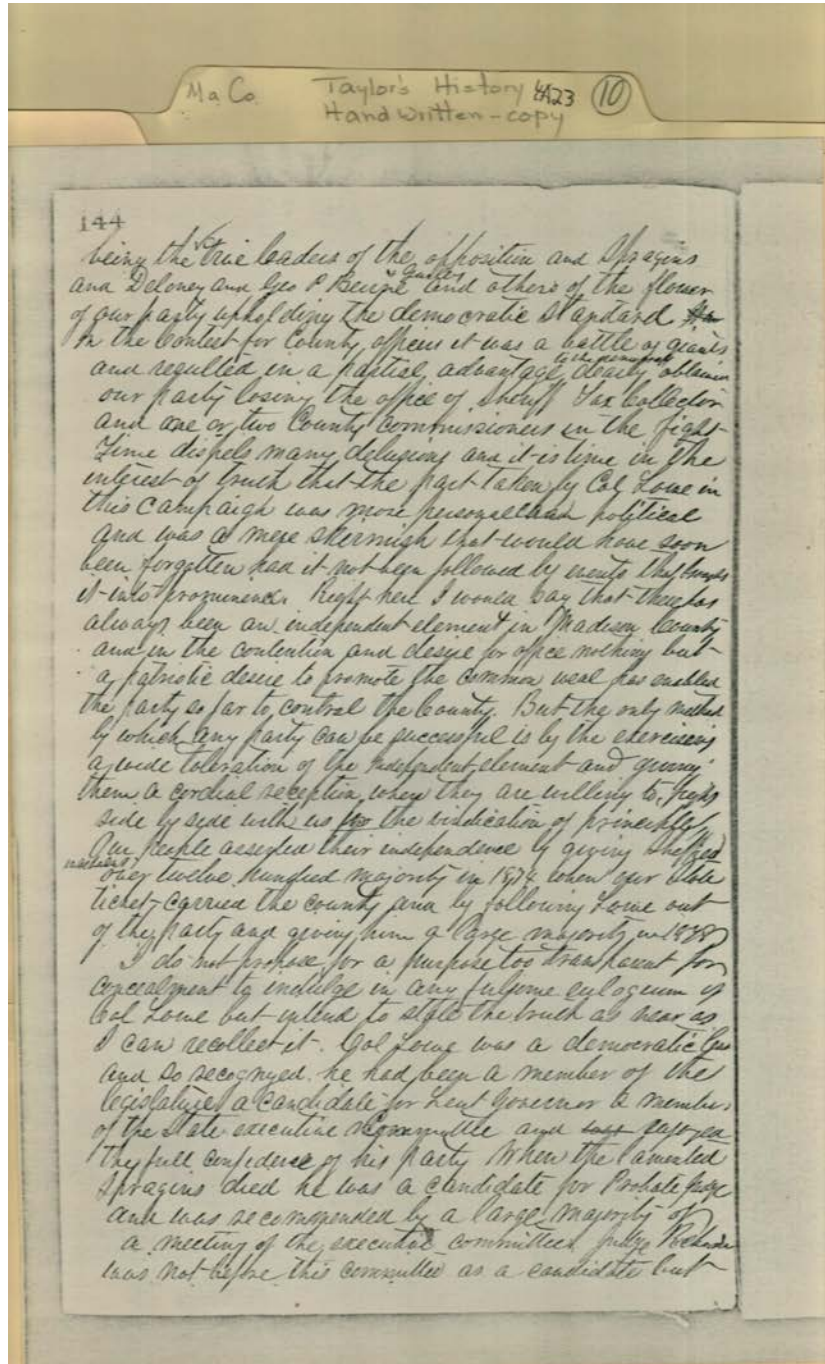 Ma Co. Taylor's History 4A23 10
Hand written - copy
144
being the true leaders of the opposition and Spragins
and Deloney and Geo P Beirne and others of the flower
of our party upholding the democratic standard
In the Contest for County officers it was a battle of giants
and resulted in a partial advantage dearly obtained
our party losing the office of Sheriff Tax Collector
and one or two County Commissioners in the fight
Time dispels many delusions and it is time in the
interest of truth that the part taken by Col Lowe in
this Campaign was more personal than political
and was a mere skirmish that would have soon
been forgotten had it not been followed by events that brought
it into prominence. Right here I would say that there has
always been an independent element in Madison County
and in the contention and desire for office nothing but
a patriotic desire to promote the common weal has enabled
the party so far to control the County. But the only method
by which any party can be successful is by the exercising
a wide toleration of the Independent element and giving
them a cordial reception when they are willing to fight
side by side with us the vindication of principle
Our people asserted their independence by giving Sheffield
over twelve hundred majority in 1874 when our State
ticket carried the county and by following Lowe out
of the party and giving him a large majority in 1878
I do not propose for a purpose too transparent for
concealment to indulge in any fulsome eulogium of
Col Lowe but intend to state the truth as near as
I can recollect it. Col Lowe was a democratic
and so recognized. he had been a member of the
legislature a candidate for Leut Governor a member
of the State executive Committee and enjoyed
the full confidence of his party When the lamented
Spragins died he was a candidate for Probate Judge
and was recommended by a large majority of
a meeting of the executive committee. Judge Richardson
was not before this committee as a candidate but